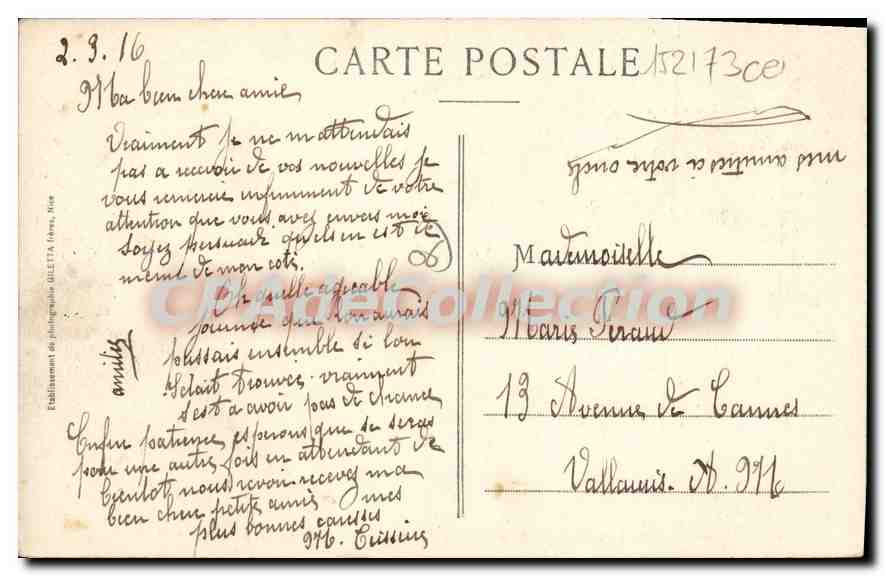 2.3.16
CARTE POSTALE
152173
Ma bien chere amie
Vraiment je ne m'attendais
pas a recevoir de vos nouvelles je
vous remercie infiniment de votre
attention que vous avez envers moi
Soyez persuadé quelsen est de
meme de mon coté.
Oh quelle agreable
journee que l'on aurais
passais ensemble si lon
Selait trouver. vraiment
sest a avoir pas de chance
Enfin patience, esperons que se seras
pour une autre fois en attendant de
bientot nous revoir recevez ma
bien chere petite amie mes
plus bonnes caresses
M.
amities
06
mes amities a votre oncle
Mademoiselle
Marie Peraud
13 Avenue de Cannes
Vallauris. A. M
Etablissement de photographie GILETTA frères, Nice
CPAdeCollection